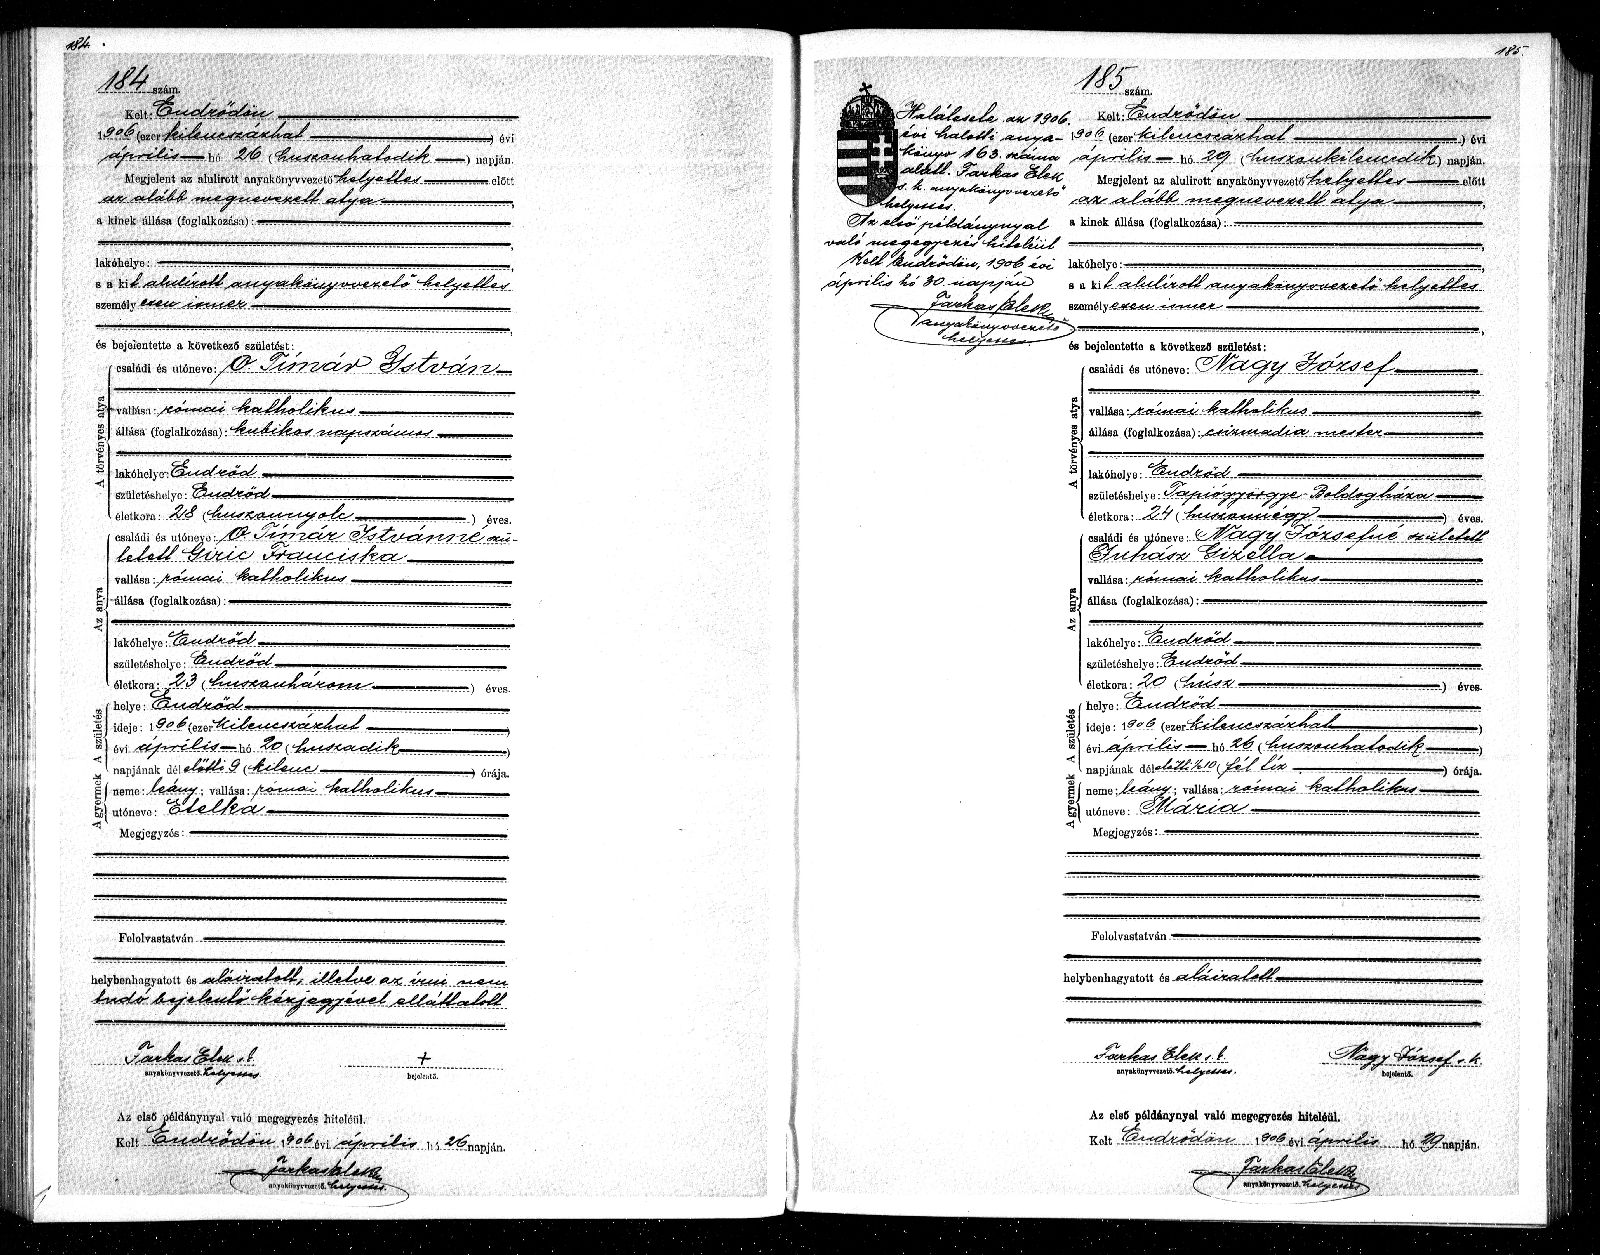 184.
184 szám.
Kelt: Endrődön
1906 (ezer kilenczszázhat ) évi
április hó 26 (huszonhatodik ) napján.
Megjelent az alulirott anyakönyvvezető helyettes előtt
az alább megnevezett atya ,
a kinek állása (foglalkozása):
,
lakóhelye: ,
s a kit alulírott anyakönyvvezető helyettes
személyesen ismer
,
és bejelentette a következő születést:
A törvényes atya
családi és utóneve: O. Tímár István
vallása: római katholikus
állása (foglalkozása): kubikos napszámos
lakóhelye: Endrőd
születéshelye: Endrőd
életkora: 28 (huszonnyolc ) éves.
Az anya
családi és utóneve: O. Tímár Istvánné szü-
letett Giric Franciska
vallása: római katholikus
állása (foglalkozása):
lakóhelye: Endrőd
születéshelye: Endrőd
életkora: 23 (huszonhárom ) éves.
A születés
helye: Endrőd
ideje: 1906 (ezer kilencszázhat )
évi április hó 20 (huszadik )
napjának dél előtti 9 (kilenc ) órája.
A gyermek
neme: leány; vallása: római katholikus
utóneve: Etelka
Megjegyzés:
Felolvastatván
helybenhagyatott és aláiratott, illetve az írni nem
tudó bejelentő kézjegyével elláttatott
Farkas Elek s. k. +
anyakönyvvezető. helyettes bejelentő.
Az első példánynyal való megegyezés hiteléül.
Kelt Endrődön 1906 évi április hó 26 napján.
Farkas Elek
anyakönyvvezető. helyettes
185.
Halálesete az 1906.
évi halotti anya-
könyv 163. száma
alatt. Farkas Elek
s. k. anyakönyvvezető
helyettes.
Az első példánynyal
való megegyezés hiteléül
Kelt Endrődön, 1906 évi
április hó 30 napján
Farkas Elek
anyakönyvvezető
helyettes.
185 szám.
Kelt: Endrődön
1906 (ezer kilenczszázhat ) évi
április hó 29 (huszonkilencedik) napján.
Megjelent az alulirott anyakönyvvezető helyettes előtt
az alább megnevezett atya ,
a kinek állása (foglalkozása):
,
lakóhelye: ,
s a kit alulírott anyakönyvvezető helyettes
személyesen ismer
,
és bejelentette a következő születést:
A törvényes atya
családi és utóneve: Nagy József
vallása: római katholikus
állása (foglalkozása): csizmadia mester
lakóhelye: Endrőd
születéshelye: Tápiógyörgye-Boldogháza
életkora: 24 (huszonnégy ) éves.
Az anya
családi és utóneve: Nagy Józsefné született
Juhász Gizella
vallása: római katholikus
állása (foglalkozása):
lakóhelye: Endrőd
születéshelye: Endrőd
életkora: 20 (húsz ) éves.
A születés
helye: Endrőd
ideje: 1906 (ezer kilencszázhat )
évi április hó 26 (huszonhatodik )
napjának dél előtti ½10 (fél tíz ) órája.
A gyermek
neme: leány; vallása: római katholikus
utóneve: Mária
Megjegyzés:
Felolvastatván
helybenhagyatott és aláiratott
Farkas Elek s. k. Nagy József s. k.
anyakönyvvezető. helyettes. bejelentő.
Az első példánynyal való megegyezés hiteléül.
Kelt Endrődön 1906 évi április hó 29 napján.
Farkas Elek
anyakönyvvezető. helyettes